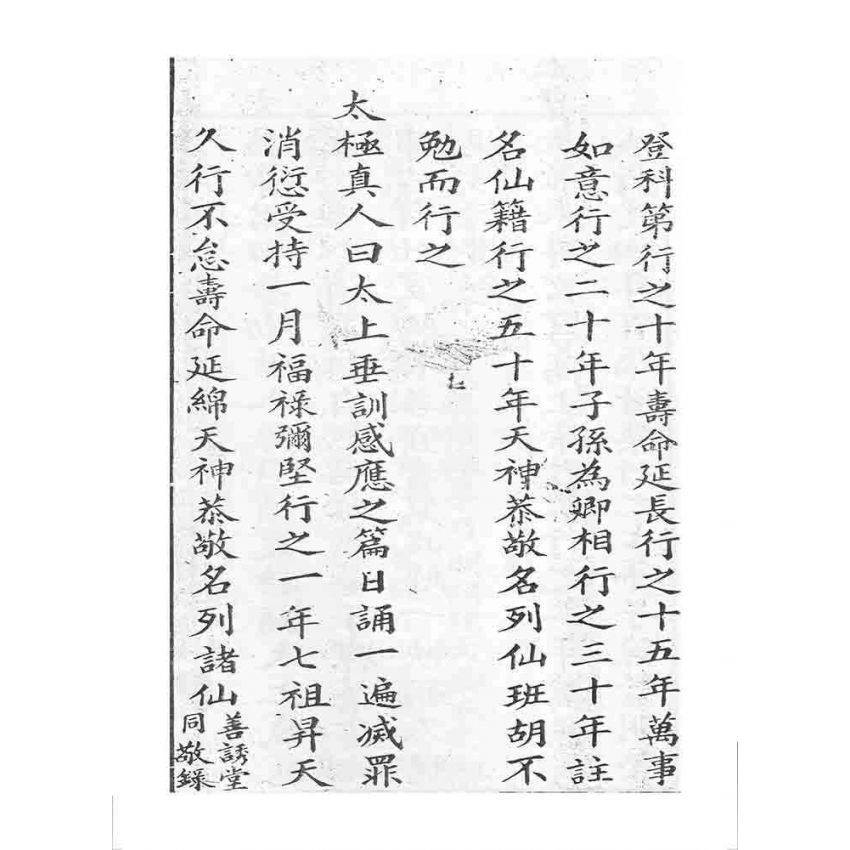 登科第行之十年壽命延長行之十五年萬事
如意行之二十年子孫為卿相行之三十年註
名仙籍行之五十年天神恭敬名列仙班胡不
勉而行之
太極真人曰太上垂訓感應之篇日誦一遍滅罪
消愆受持一月福祿彌堅行之一年七祖昇天
久行不怠壽命延綿天神恭敬名列諸仙
善誘堂
同敬錄